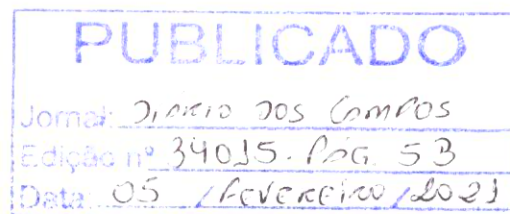 PUBLICADO
Jornal: DIARIO DOS CAMPOS
Edição nº 34015. PAG. 5B
Data: 05 / FEVEREIRO / 2021